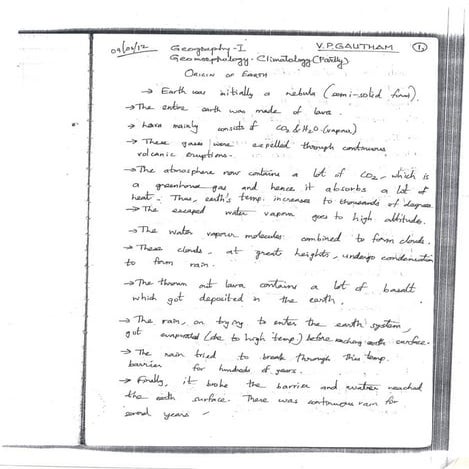 09/09/12 Geography-I V.P.GAUTHAM 1
Geomorphology. Climatology (Partly)
ORIGIN OF EARTH
→ Earth was initially a nebula (semi-solid form).
→ The entire earth was made of lava.
→ Lava mainly consists of CO2 & H2O (vapour)
→ These gases were expelled through continuous
volcanic eruptions.
→ The atmosphere now contains a lot of CO2, which is
a greenhouse gas and hence it absorbs a lot of
heat. Thus, earth's temp. increases to thousands of degrees
→ The escaped water vapour goes to high altitudes.
→ The water vapour molecules combined to form clouds.
→ These clouds, at great heights, undergo condensation
to form rain.
→ The thrown out lava contains a lot of basalt
which got deposited in the earth.
→ The rain, on trying to enter the earth system,
got evaporated (due to high temp) before reaching earth surface.
→ The rain tried to break through this temp.
barrier for hundreds of years.
→ Finally, it broke the barrier and water reached
the earth surface. There was continuous rain for
several years